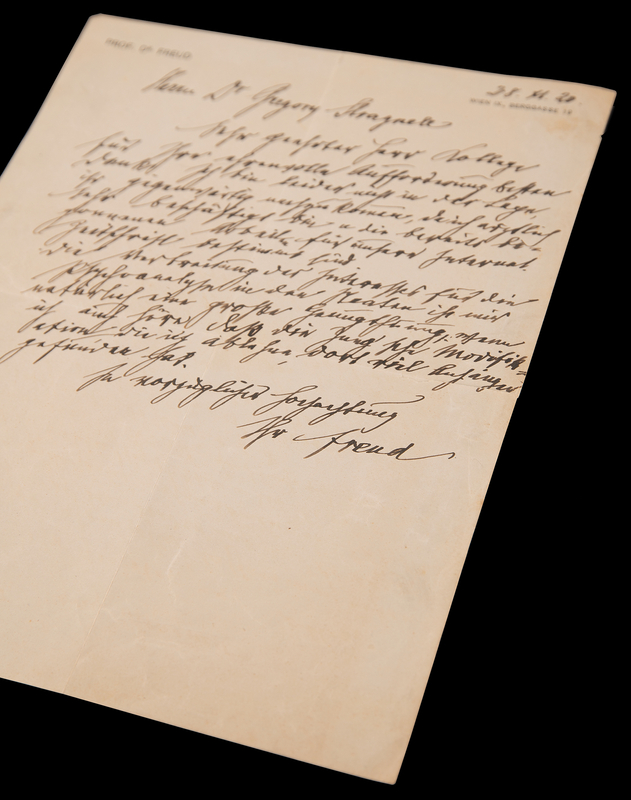 PROF. Dr FREUD
28. XI. 20
WIEN IX., BERGGASSE 19
Herrn Dr Gregory Stragnell
Sehr geehrter Herr College
Für Ihre ehrenvolle Aufforderung besten
Dank. Ich bin leider nicht in der Lage,
ihr gegenwärtig nachzukommen, da ich ärztlich
sehr beschäftigt bin u die bereits be-
gonnenen Arbeiten für unsere Internat.
Zeitschrift bestimmt sind.
die Verbreitung des Interesses für die
Psychoanalyse in den Staaten ist mir
natürlich eine große Genugthuung, wenn
ich auch höre, daß die Jung'sche Modifik-
ation, die ich ablehne, dort viel Anhänger
gefunden hat
In vorzüglicher Hochachtung
Ihr Freud